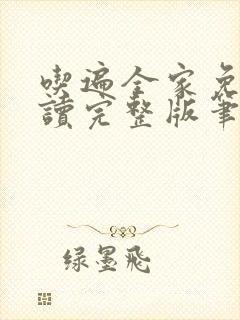 喫遍全家免
讀完整版筆
绿墨飛